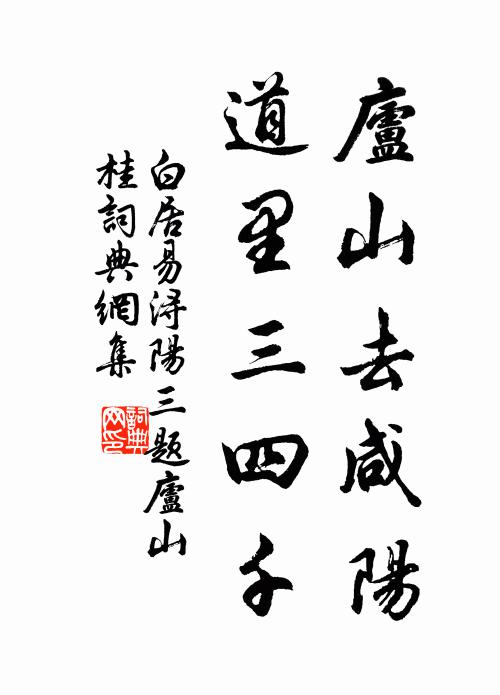 廬山去咸陽
道里三四千
白居易潯陽三题廬山
桂詞典網集
詞典
网印